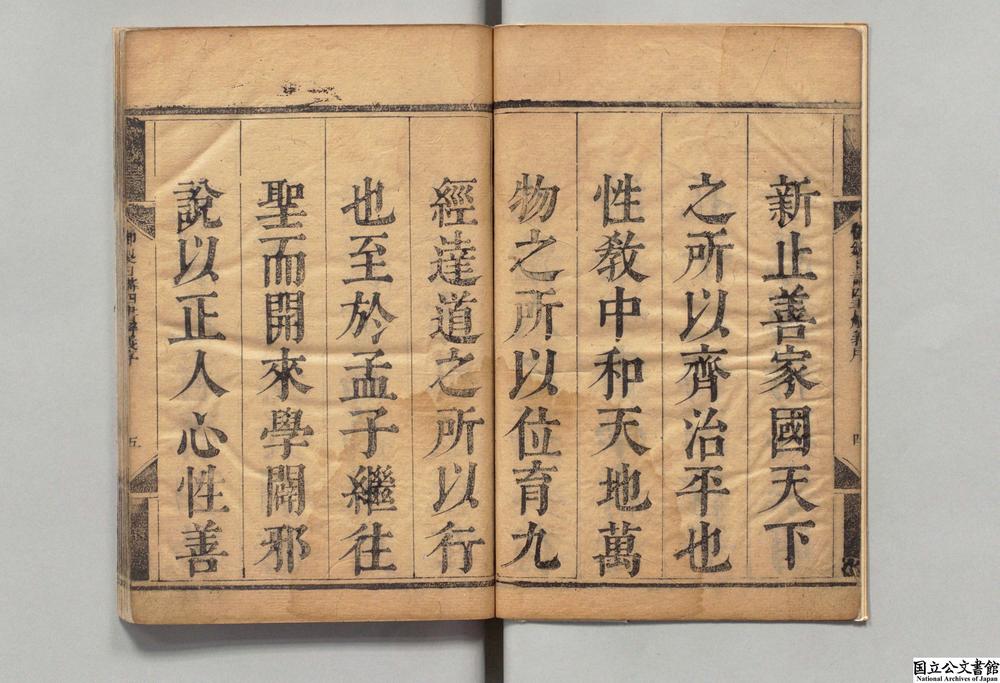 新止善家國天下
之所以齊治平也
性教中和天地萬
物之所以位育九
經達道之所以行
也至於孟子繼往
聖而開來學闢邪
說以正人心性善
四
五
国立公文書館
National Archives of Japan